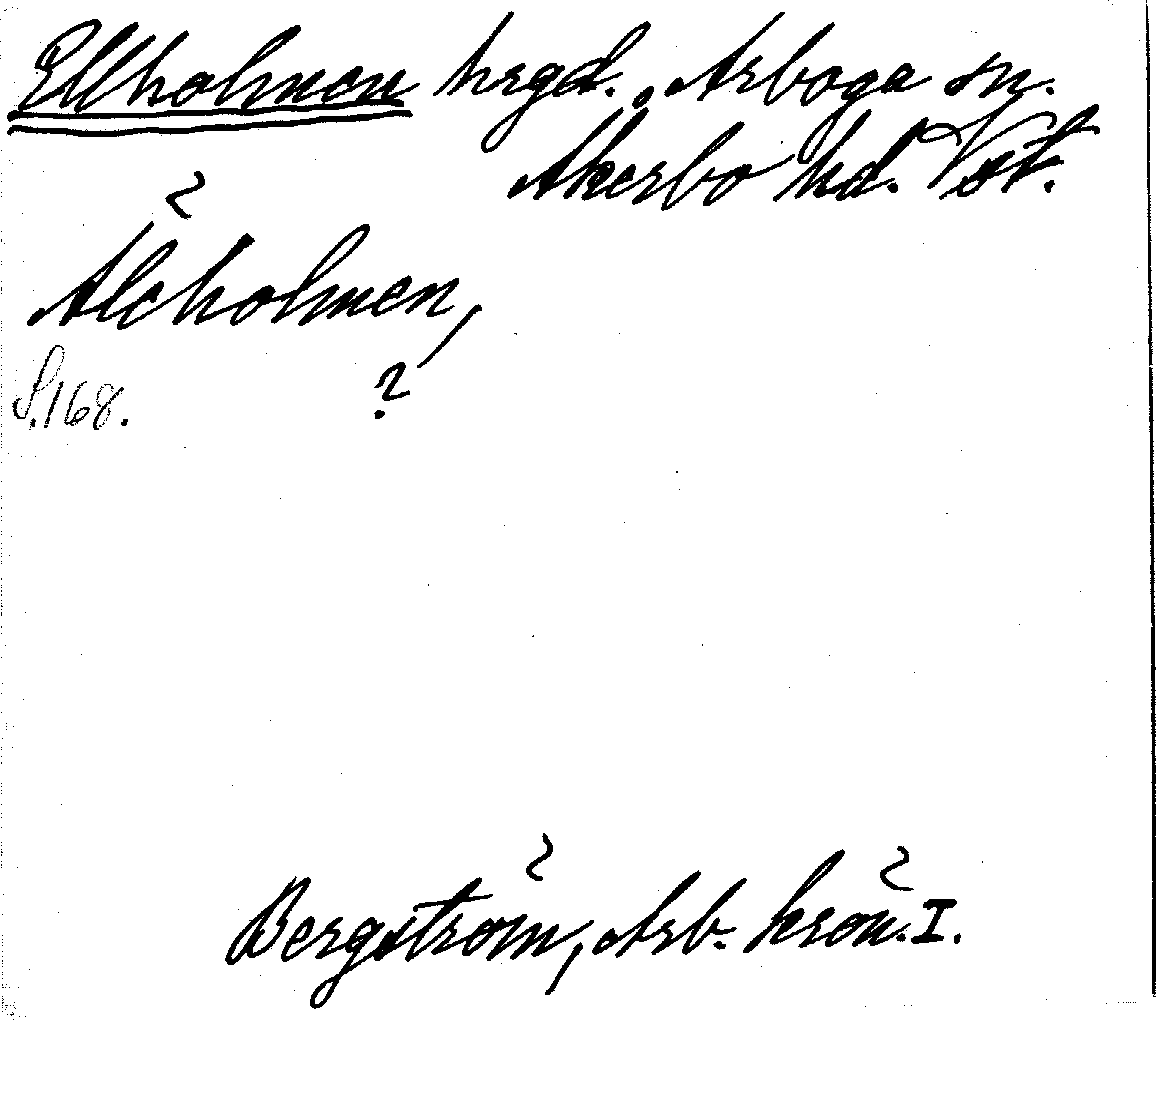 Ellholmen hrgd. Arboga sn.
Åkerbo hd. Vstm.
Älcholmen,
S. 168. ?
Bergström, Arb. krön. I.